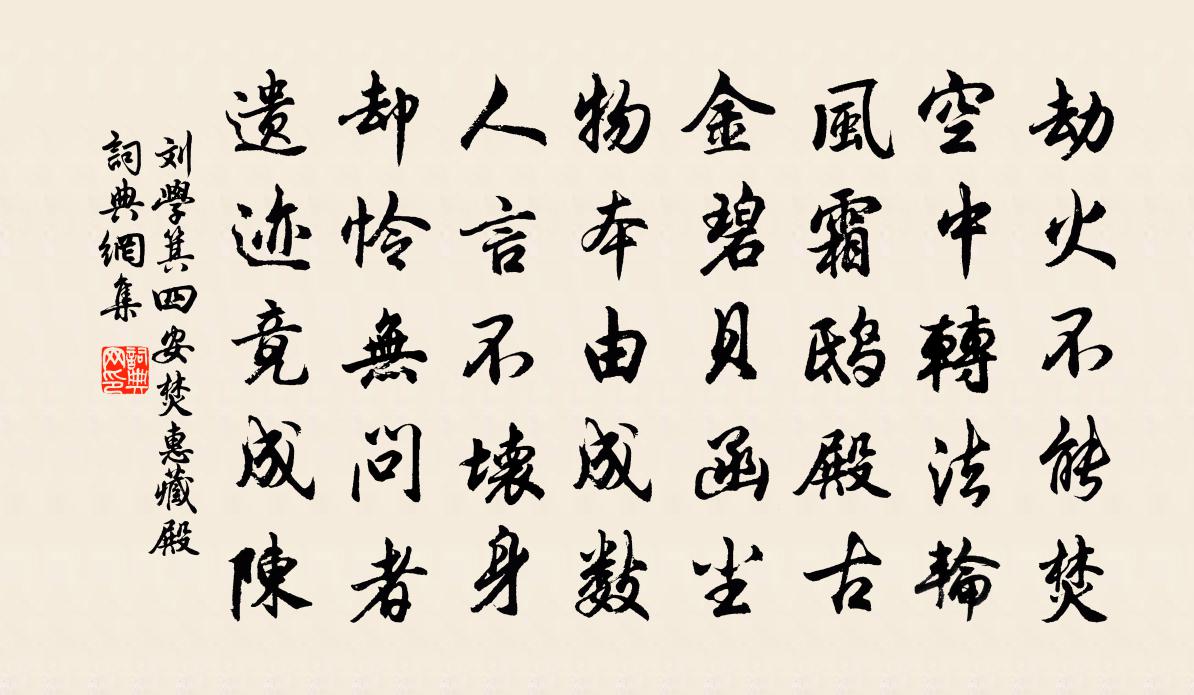 劫火不能焚
空中轉法輪
風霜鴟殿古
金碧貝函尘
物本由成数
人言不壊身
却怜無问者
遗迹竟成陳
刘學箕四安焚惠藏殿
詞典網集
詞典网印